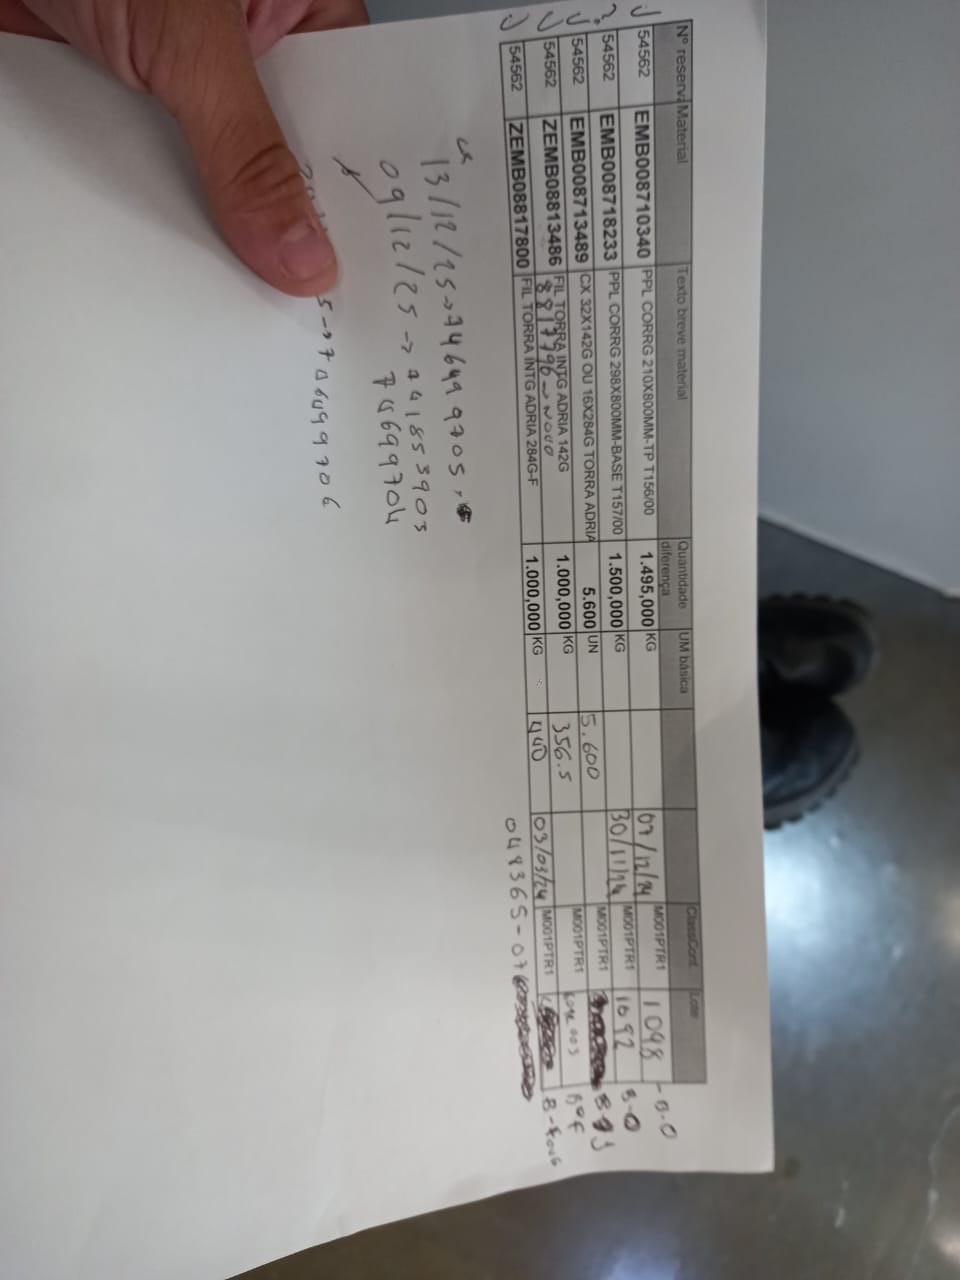 Nº reserva Material Texto breve material Quantidade diferença UM básica ClassCont. Lote
54562 EMB008710340 PPL CORRG 210X800MM-TP T156/00 1.495,000 KG 07/12/24 M001PTR1 1098 - B-O
54562 EMB008718233 PPL CORRG 298X800MM-BASE T157/00 1.500,000 KG 30/11/24 M001PTR1 1092 B-O
54562 EMB008713489 CX 32X142G OU 16X284G TORRA ADRIA 5.600 UN 5.600 M001PTR1
54562 ZEMB08813486 FIL TORRA INTG ADRIA 142G 1.000,000 KG 356.5 M001PTR1
8817796 NOVO
54562 ZEMB08817800 FIL TORRA INTG ADRIA 284G-F 1.000,000 KG 440 03/03/24 M001PTR1
048365-07
13/12/25→746499705
09/12/25→741853903
74699704
5→746499706